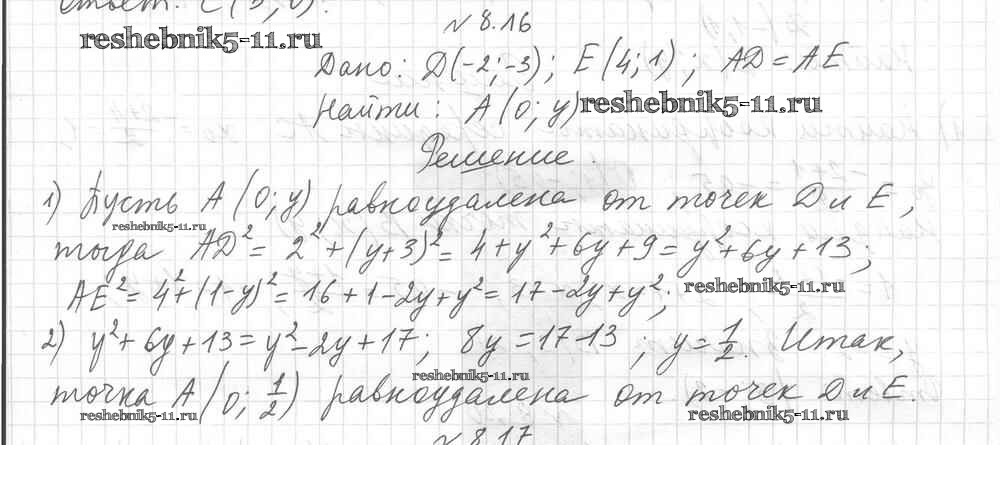 Ответ: С(3; 0).
№ 8.16
reshebnik5-11.ru
Дано: D(-2; -3); E(4; 1); AD = AE
Найти: A(0; y) reshebnik5-11.ru
Решение.
1) Пусть A(0; y) равноудалена от точек D и E,
reshebnik5-11.ru
тогда AD² = 2² + (y+3)² = 4 + y² + 6y + 9 = y² + 6y + 13;
AE² = 4² + (1-y)² = 16 + 1 - 2y + y² = 17 - 2y + y²; reshebnik5-11.ru
2) y² + 6y + 13 = y² - 2y + 17; 8y = 17 - 13; y = 1/2. Итак,
reshebnik5-11.ru
точка A(0; 1/2) равноудалена от точек D и E.
reshebnik5-11.ru reshebnik5-11.ru
№ 8.17